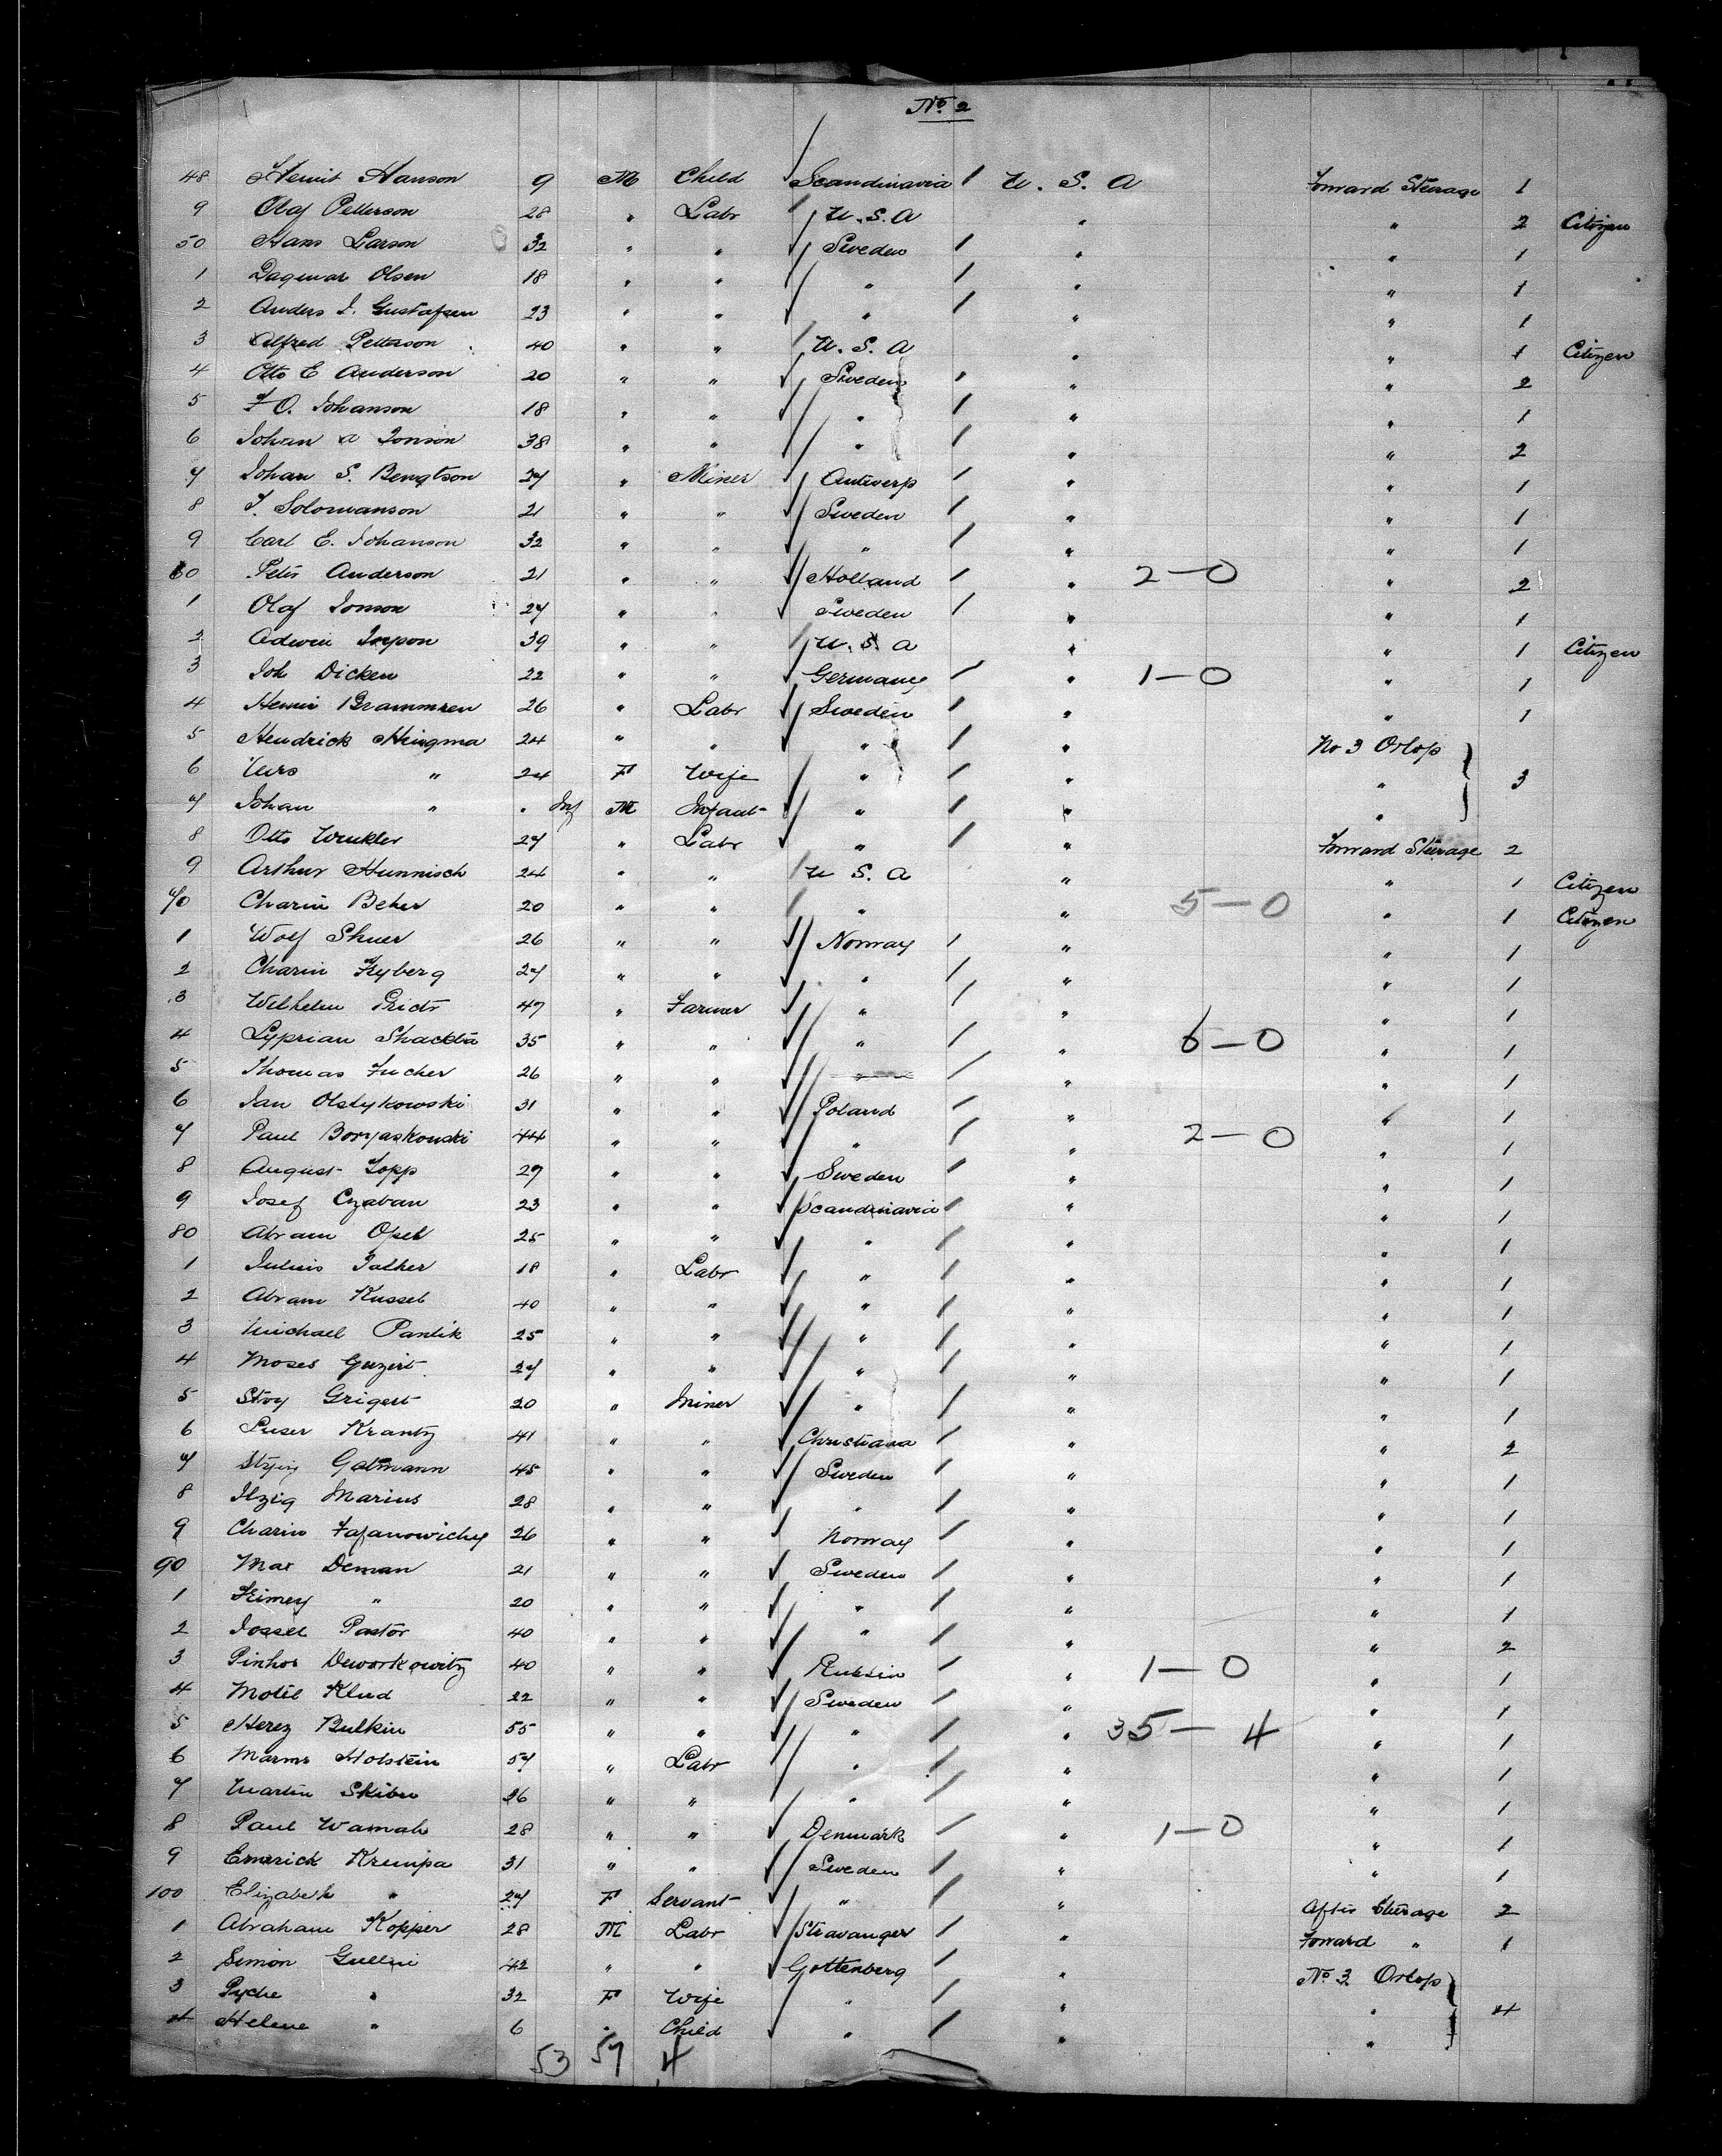 No. 2
48 Hanson 9 M Child Scandinavia U. S. A Forward Steerage 1
9 Olaf Petterson 28 " Labr U. S. A " " 2 Citizen
50 Hans Larson 32 " " Sweden " " 1
1 Dagmar Olsen 18 " " " " " 1
2 Anders J. Gustafsen 23 " " " " " 1
3 Alfred Petterson 40 " " U. S. A " " 1 Citizen
4 Otto E Anderson 20 " " Sweden " " 2
5 F O. Johanson 18 " " " " " 1
6 Johan A Jonson 38 " " " " " 2
7 Johan S. Bengtson 27 " Miner Antwerp " " 1
8 J. Solomanson 21 " " Sweden " " 1
9 Carl E. Johanson 32 " " " " " 1
60 Peter Anderson 21 " " Holland " 2-0 " 2
1 Olaf Jonson 27 " " Sweden " " 1
2 39 " " U. S. A " " 1 Citizen
3 Joh Dicken 22 " " Germany " 1-0 " 1
4 Brammsen 26 " Labr Sweden " " 1
5 Hendrick Hingma 24 " " " " No 3 Orlop
6 Mrs " 24 F Wife " " " 3
7 Johan " " Inf M Infant " " "
8 Otto Winkler 27 " Labr " " Forward Steerage 2
9 Arthur Hunnisch 24 " " U S. A " " 1 Citizen
70 Charin Beker 20 " " " " 5-0 " 1 Citizen
1 Wolf Shuer 26 " " Norway " " 1
2 Charin Fryberg 27 " " " " " 1
3 Wilhelm 47 " Farmer " " " 1
4 Cyprian Shackta 35 " " " " 6-0 " 1
5 Thomas Fucher 26 " " " " 1
6 Jan Olstykowski 31 " " Poland " " 1
7 Paul Boryaskowski 44 " " " " 2-0 " 1
8 August Zopp 27 " " Sweden " " 1
9 Josef Czaban 23 " " Scandinavia " " 1
80 Abram Opel 25 " " " " " 1
1 Julius 18 " Labr " " " 1
2 Abram Kussel 40 " " " " " 1
3 Michael Pantik 25 " " " " " 1
4 Moses Guzirt 27 " " " " " 1
5 Stoy Grigert 20 " Miner " " " 1
6 Krantz 41 " " Christiana " " 2
7 Gatmann 45 " " Sweden " " 1
8 Itzig Marius 28 " " " " " 1
9 Charin Fafanowichy 26 " " Norway " " 1
90 Max Deman 21 " " Sweden " " 1
1 " 20 " " " " " 1
2 Jossel Pastor 40 " " " " " 2
3 Pinhos Deworkowitz 40 " " Russia " 1-0 " 1
4 Motel Klud 22 " " Sweden " " 1
5 Herez Bulkin 55 " " " " 35-4 " 1
6 Holstein 57 " Labr " " " 1
7 Martin Skibu 26 " " " " " 1
8 Paul Wamah 28 " " Denmark " 1-0 " 1
9 Emerick Krempa 31 " " Sweden " " 1
100 Elizabeth " 27 F Servant " " After Steerage 2
1 Abraham Kopper 28 M Labr Stavanger " Forward " 1
2 Simon 42 " " Gottenberg " No. 3 Orlop
3 " 32 F Wife " " " 4
4 Helene " 6 " Child " " "
53 57 4